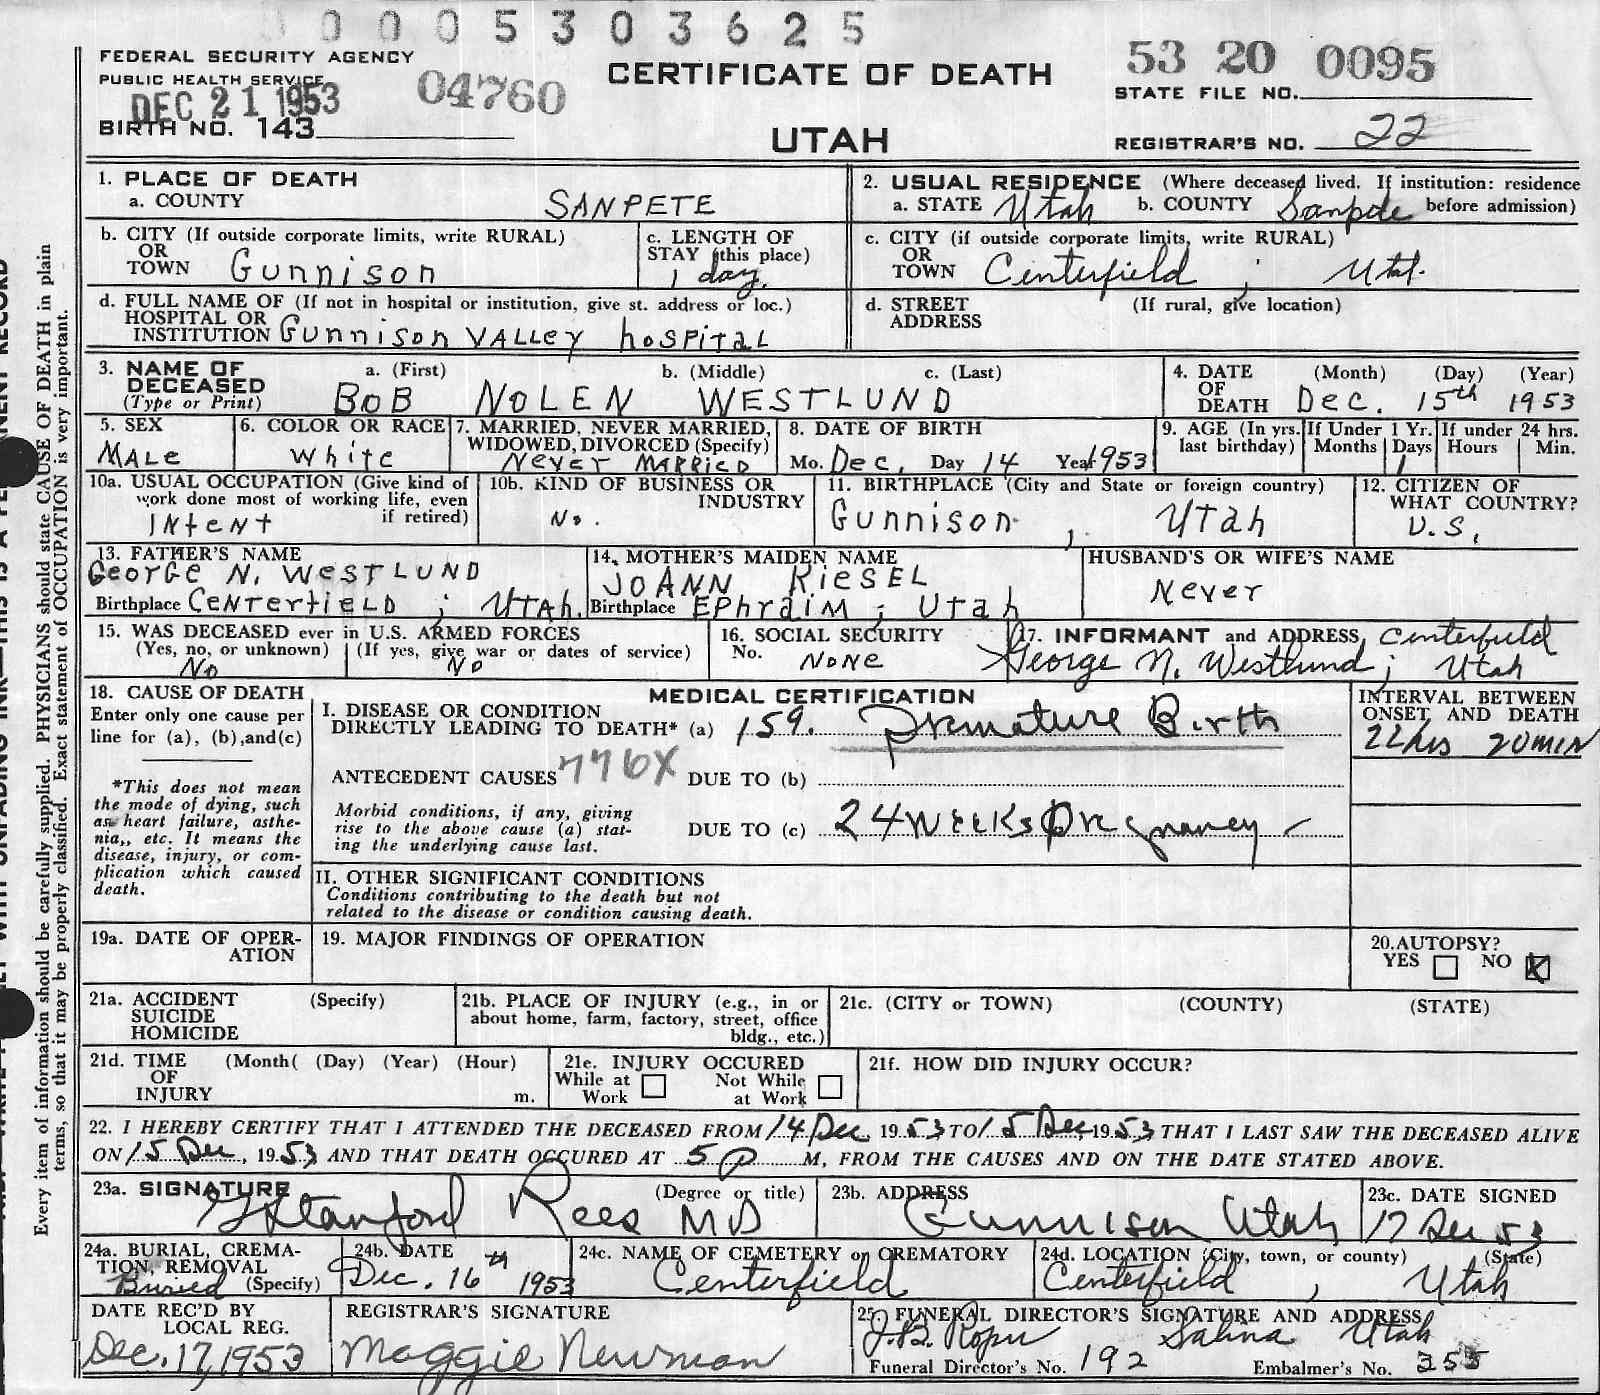 0 0 0 5 3 0 3 6 2 5
FEDERAL SECURITY AGENCY
PUBLIC HEALTH SERVICE
DEC 21 1953
04760
BIRTH NO. 143
CERTIFICATE OF DEATH
UTAH
53 20 0095
STATE FILE NO.
REGISTRAR'S NO. 22
1. PLACE OF DEATH
a. COUNTY SANPETE
2. USUAL RESIDENCE (Where deceased lived. If institution: residence
a. STATE Utah b. COUNTY Sanpete before admission)
b. CITY (If outside corporate limits, write RURAL)
OR
TOWN Gunnison
c. LENGTH OF
STAY (this place)
1 day.
c. CITY (if outside corporate limits, write RURAL)
OR
TOWN Centerfield ; Utah.
d. FULL NAME OF (If not in hospital or institution, give st. address or loc.)
HOSPITAL OR
INSTITUTION Gunnison VALLEY hospital
d. STREET (If rural, give location)
ADDRESS
3. NAME OF a. (First) b. (Middle) c. (Last)
DECEASED
(Type or Print) BOB NOLEN WESTLUND
4. DATE (Month) (Day) (Year)
OF
DEATH Dec. 15th 1953
5. SEX
MALE
6. COLOR OR RACE
White
7. MARRIED, NEVER MARRIED,
WIDOWED, DIVORCED (Specify)
Never MARRIED
8. DATE OF BIRTH
Mo. Dec. Day 14 Year 1953
9. AGE (In yrs. last birthday)
If Under 1 Yr.
Months Days
1
If under 24 hrs.
Hours Min.
10a. USUAL OCCUPATION (Give kind of
work done most of working life, even
if retired)
INfeNT
10b. KIND OF BUSINESS OR
INDUSTRY
No.
11. BIRTHPLACE (City and State or foreign country)
Gunnison , Utah
12. CITIZEN OF
WHAT COUNTRY?
U.S.
13. FATHER'S NAME
George N. WESTLUND
Birthplace Centerfield ; UTAH.
14. MOTHER'S MAIDEN NAME
JOANN KIESEL
Birthplace Ephraim ; Utah
HUSBAND'S OR WIFE'S NAME
Never
15. WAS DECEASED ever in U.S. ARMED FORCES
(Yes, no, or unknown) (If yes, give war or dates of service)
No No
16. SOCIAL SECURITY
No. NONE
17. INFORMANT and ADDRESS Centerfield
George N. Westlund ; Utah
18. CAUSE OF DEATH
Enter only one cause per
line for (a), (b), and (c)
*This does not mean
the mode of dying, such
as heart failure, asthe-
nia,, etc. It means the
disease, injury, or com-
plication which caused
death.
MEDICAL CERTIFICATION
I. DISEASE OR CONDITION
DIRECTLY LEADING TO DEATH* (a) 159. Premature Birth
INTERVAL BETWEEN
ONSET AND DEATH
22hrs 20min
ANTECEDENT CAUSES 776X DUE TO (b)
Morbid conditions, if any, giving
rise to the above cause (a) stat-
ing the underlying cause last.
DUE TO (c) 24 weeks Pregnancy
II. OTHER SIGNIFICANT CONDITIONS
Conditions contributing to the death but not
related to the disease or condition causing death.
19a. DATE OF OPER-
ATION
19. MAJOR FINDINGS OF OPERATION
20. AUTOPSY?
YES NO X
21a. ACCIDENT (Specify)
SUICIDE
HOMICIDE
21b. PLACE OF INJURY (e.g., in or
about home, farm, factory, street, office
bldg., etc.)
21c. (CITY or TOWN) (COUNTY) (STATE)
21d. TIME (Month( (Day) (Year) (Hour)
OF
INJURY m.
21e. INJURY OCCURED
While at Work Not While at Work
21f. HOW DID INJURY OCCUR?
22. I HEREBY CERTIFY THAT I ATTENDED THE DECEASED FROM 14 Dec, 1953 TO 15 Dec, 1953 THAT I LAST SAW THE DECEASED ALIVE
ON 15 Dec, 1953 AND THAT DEATH OCCURED AT 5 P M, FROM THE CAUSES AND ON THE DATE STATED ABOVE.
23a. SIGNATURE (Degree or title)
Stanford Rees MD
23b. ADDRESS
Gunnison Utah
23c. DATE SIGNED
17 Dec 53
24a. BURIAL, CREMA-
TION, REMOVAL
Buried (Specify)
24b. DATE
Dec. 16th 1953
24c. NAME OF CEMETERY or CREMATORY
Centerfield
24d. LOCATION (City, town, or county) (State)
Centerfield , Utah
DATE REC'D BY
LOCAL REG.
Dec. 17, 1953
REGISTRAR'S SIGNATURE
Maggie Newman
25. FUNERAL DIRECTOR'S SIGNATURE AND ADDRESS
J.B. Salina Utah
Funeral Director's No. 192 Embalmer's No. 355
Every item of information should be carefully supplied. PHYSICIANS should state CAUSE OF DEATH in plain
terms, so that it may be properly classified. Exact statement of OCCUPATION is very important.